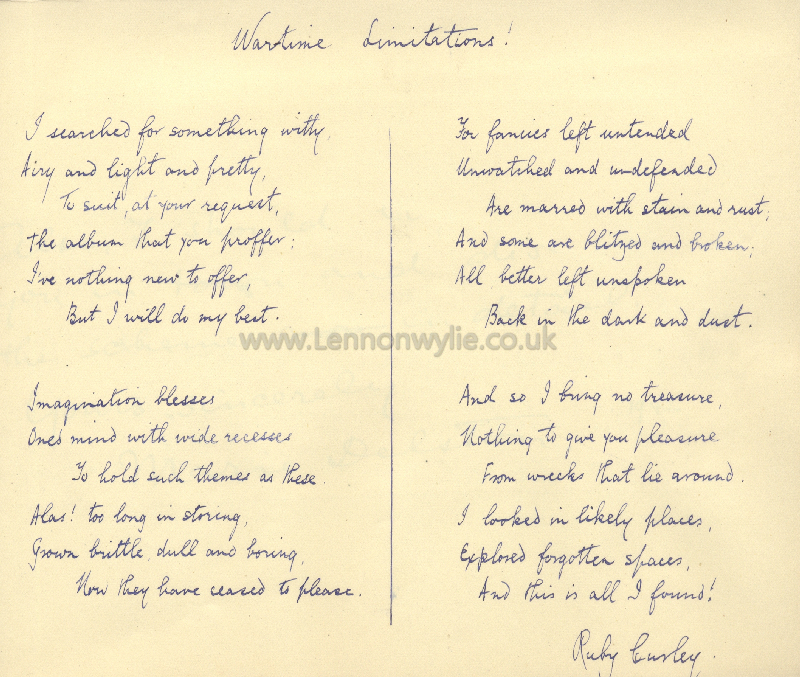 Wartime Limitations!
I searched for something witty,
Airy and light and pretty,
To suit, at your request,
The album that you proffer;
I've nothing new to offer,
But I will do my best.
Imagination blesses
Ones mind with wide recesses
To hold such themes as these.
Alas! too long in storing,
Grown brittle, dull and boring,
Now they have ceased to please.
For fancies left untended
Unwatched and undefended
Are marred with stain and rust;
And some are blitzed and broken;
All better left unspoken
Back in the dark and dust.
And so I bring no treasure,
Nothing to give you pleasure
From wrecks that lie around.
I looked in likely places,
Explored forgotten spaces,
And this is all I found!
Ruby Curley.
www.Lennonwylie.co.uk